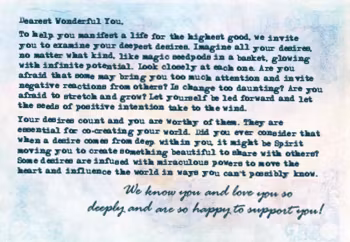 Dearest Wonderful You,
To help you manifest a life for the highest good, we invite
you to examine your deepest desires. Imagine all your desires,
no matter what kind, like magic seedpods in a basket, glowing
with infinite potential. Look closely at each one. Are you
afraid that some may bring you too much attention and invite
negative reactions from others? Is change too daunting? Are you
afraid to stretch and grow? Let yourself be led forward and let
the seeds of positive intention take to the wind.
Your desires count and you are worthy of them. They are
essential for co-creating your world. Did you ever consider that
when a desire comes from deep within you, it might be Spirit
moving you to create something beautiful to share with others?
Some desires are infused with miraculous powers to move the
heart and influence the world in ways you can't possibly know.
We know you and love you so
deeply and are so happy to support you!